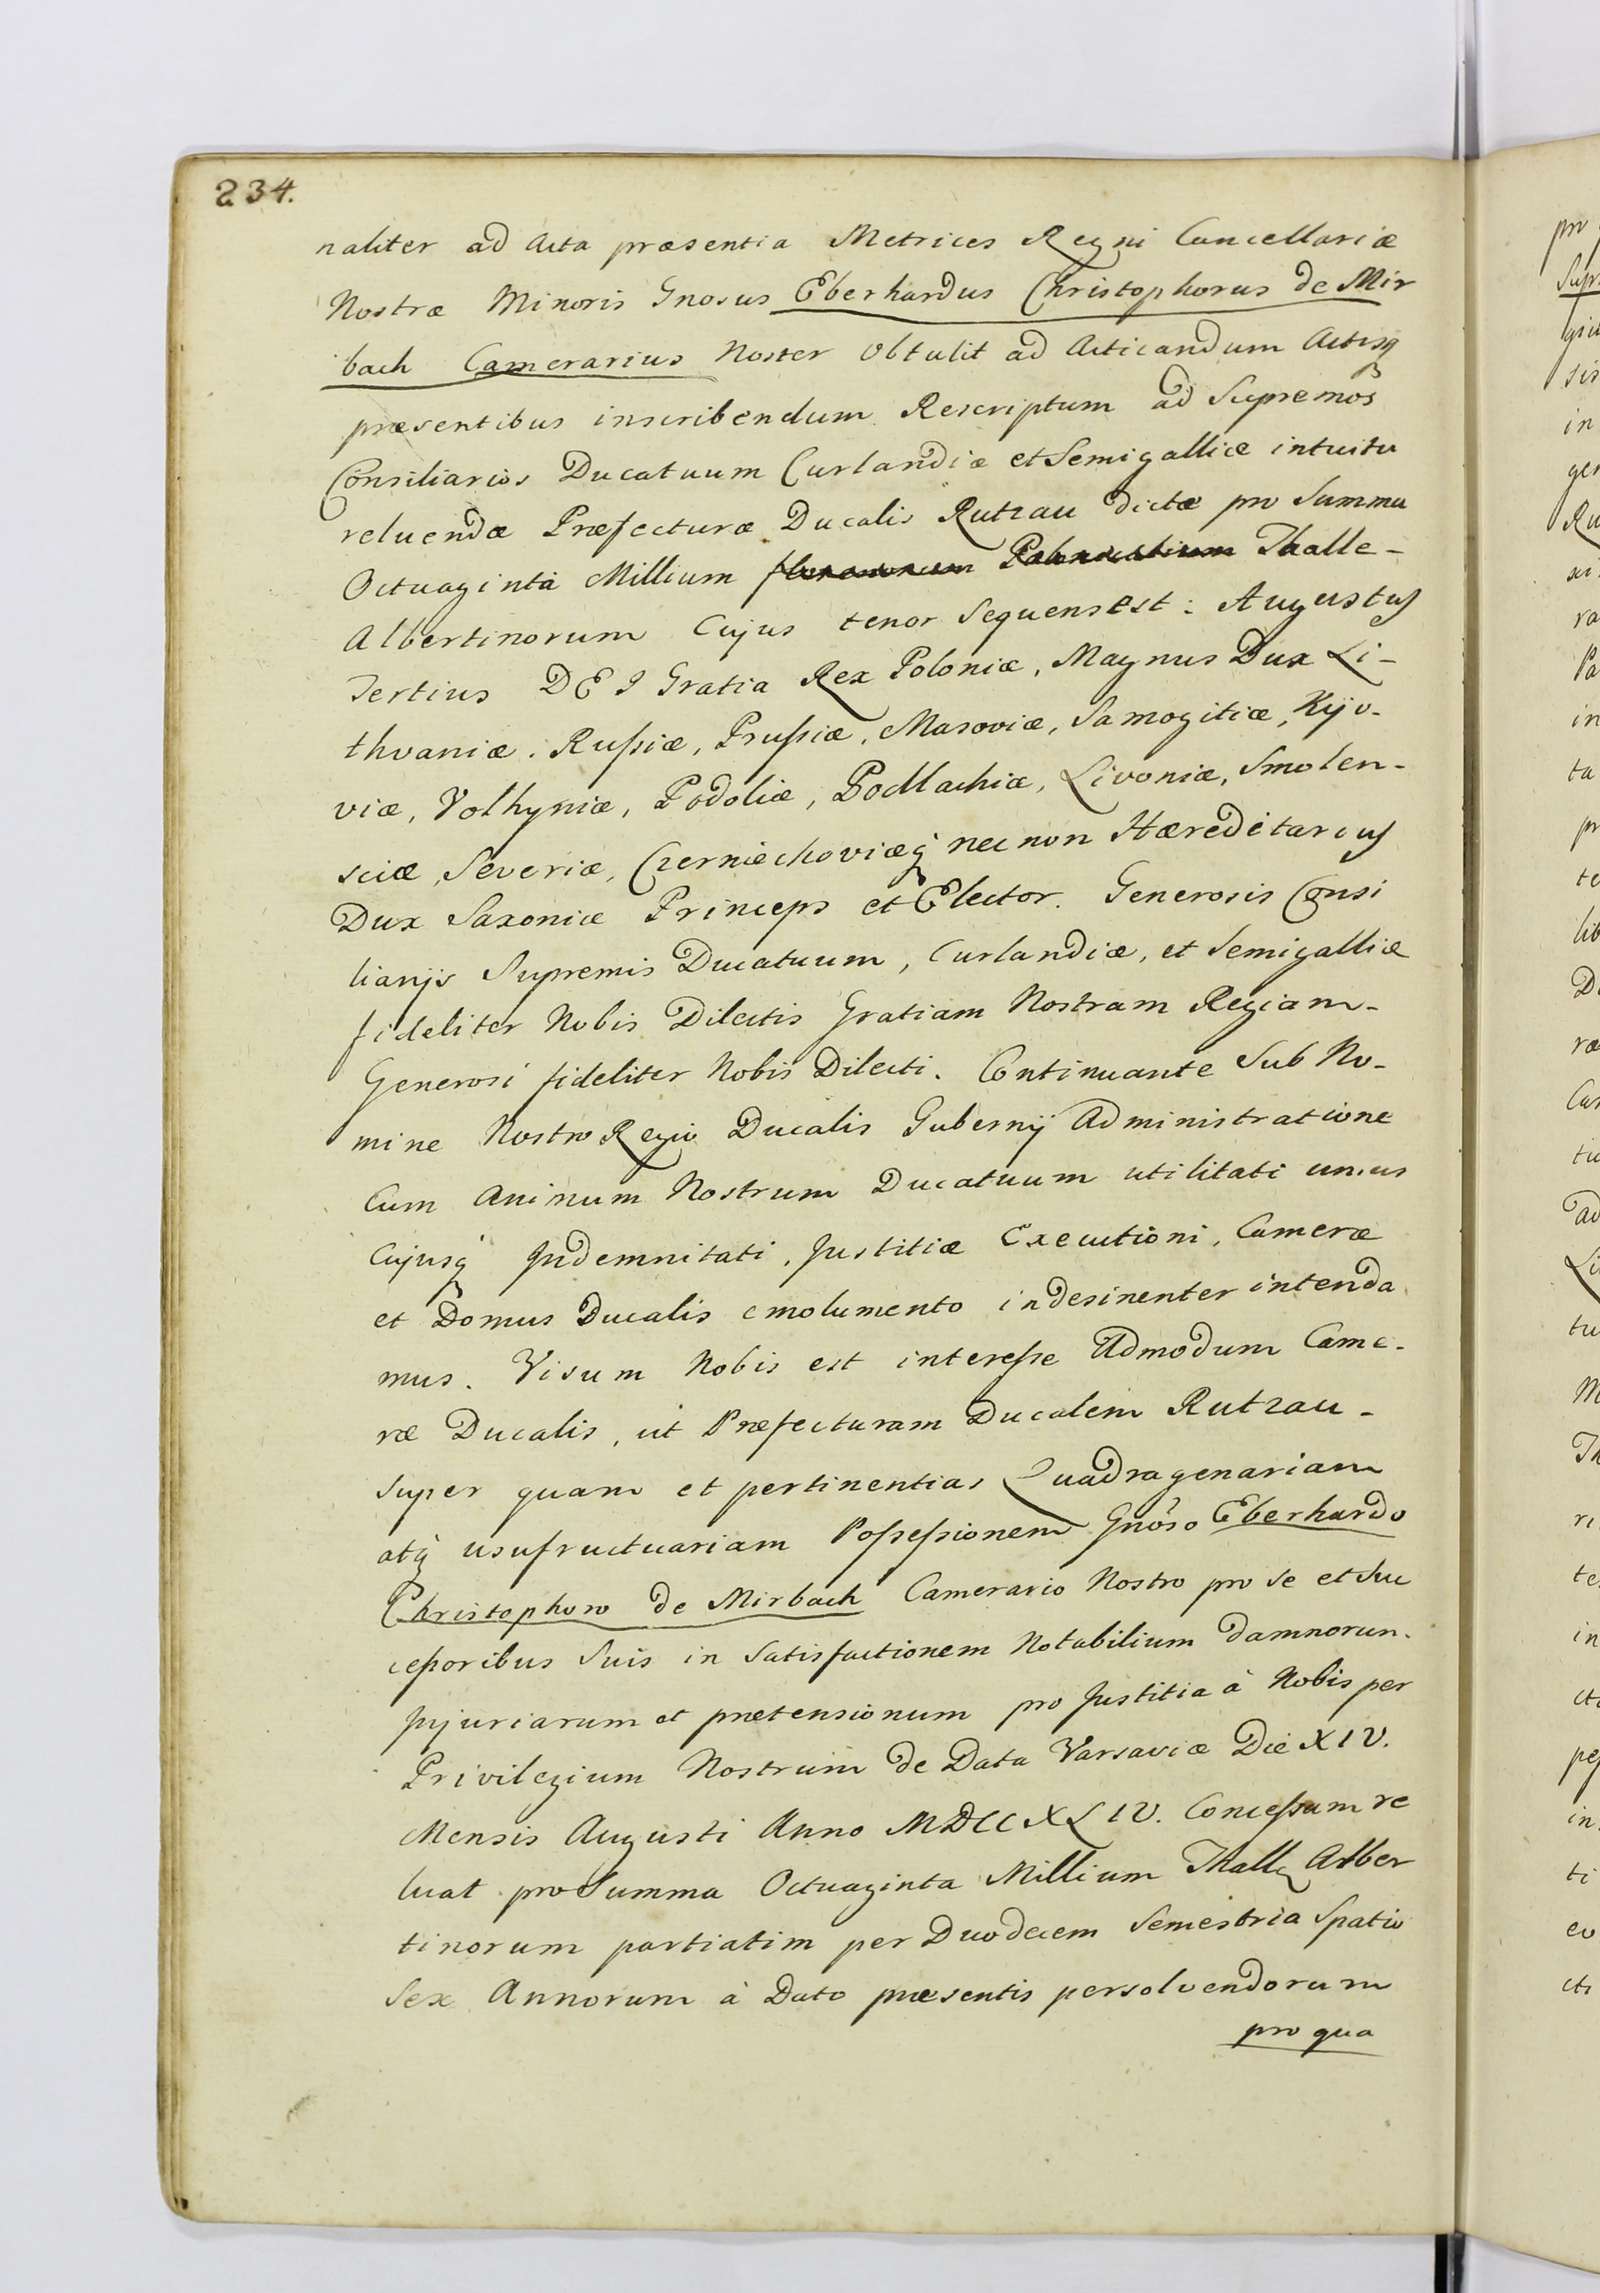 234.
naliter ad Acta præsentia Metrices Regni Cancellariæ
Nostræ Minoris Gnosus Eberhardus Christophorus de Mir
bach Camerarius Noster obtulit ad Acticandum Actisq
præsentibus inscribendum Rescriptum ad Supremos
Consiliarios Ducatuum Curlandiæ et Semigalliæ intuitu
reluendæ Præfecturæ Ducalis Rutzau dictæ pro Summa
Octuaginta Millium florenorum Polonicalium Thalle-
Albertinorum Cujus tenor Sequens est: Augustus
Tertius DEI Gratia Rex Poloniæ, Magnus Dux Li-
thvaniæ. Rußiæ, Prußiæ, Masoviæ, Samogitiæ, Kijo-
viæ, Volhyniæ, Podoliæ, Podlachiæ, Livoniæ, Smolen-
sciæ, Severiæ, Czerniechoviæq nec non Hæreditarius
Dux Saxoniæ Princeps et Elector. Generosis Consi
liarijs Supremis Ducatuum, Curlandiæ, et Semigalliæ
fideliter Nobis Dilectis Gratiam Nostram Regiam-
Generosi fideliter Nobis Dilecti. Continuante Sub No-
mine Nostro Regio Ducalis Gubernij Administratione
Cum Aninum Nostrum Ducatuum utilitati unius
Cujusq Indemnitati, Justitiæ Executioni, Cameræ
et Domus Ducalis emolumento indesinenter intenda
mus. Visum Nobis est intereße Admodum Came-
ræ Ducalis, ut Præfecturam Ducalem Rutzau-
super quam et pertinentias Quadragenariam
atq usufructuariam Poßeßionem Gnoso Eberhardo
Christophoro de Mirbach Camerario Nostro pro se et Suc
ceßoribus Suis in Satisfactionem Notabilium damnorum.
Injuriarum et prætensionum pro Justitia à Nobis per
Privilegium Nostrum de Data Varsaviæ Die XIV.
Mensis Augusti Anno MDCCXLIV. Conceßam re
luat pro Summa Octuaginta Millium Thall Alber
tinorum partiatim per Duodecem Semestria Spatio
Sex Annorum à Dato præsentis persolvendorum
pro qua